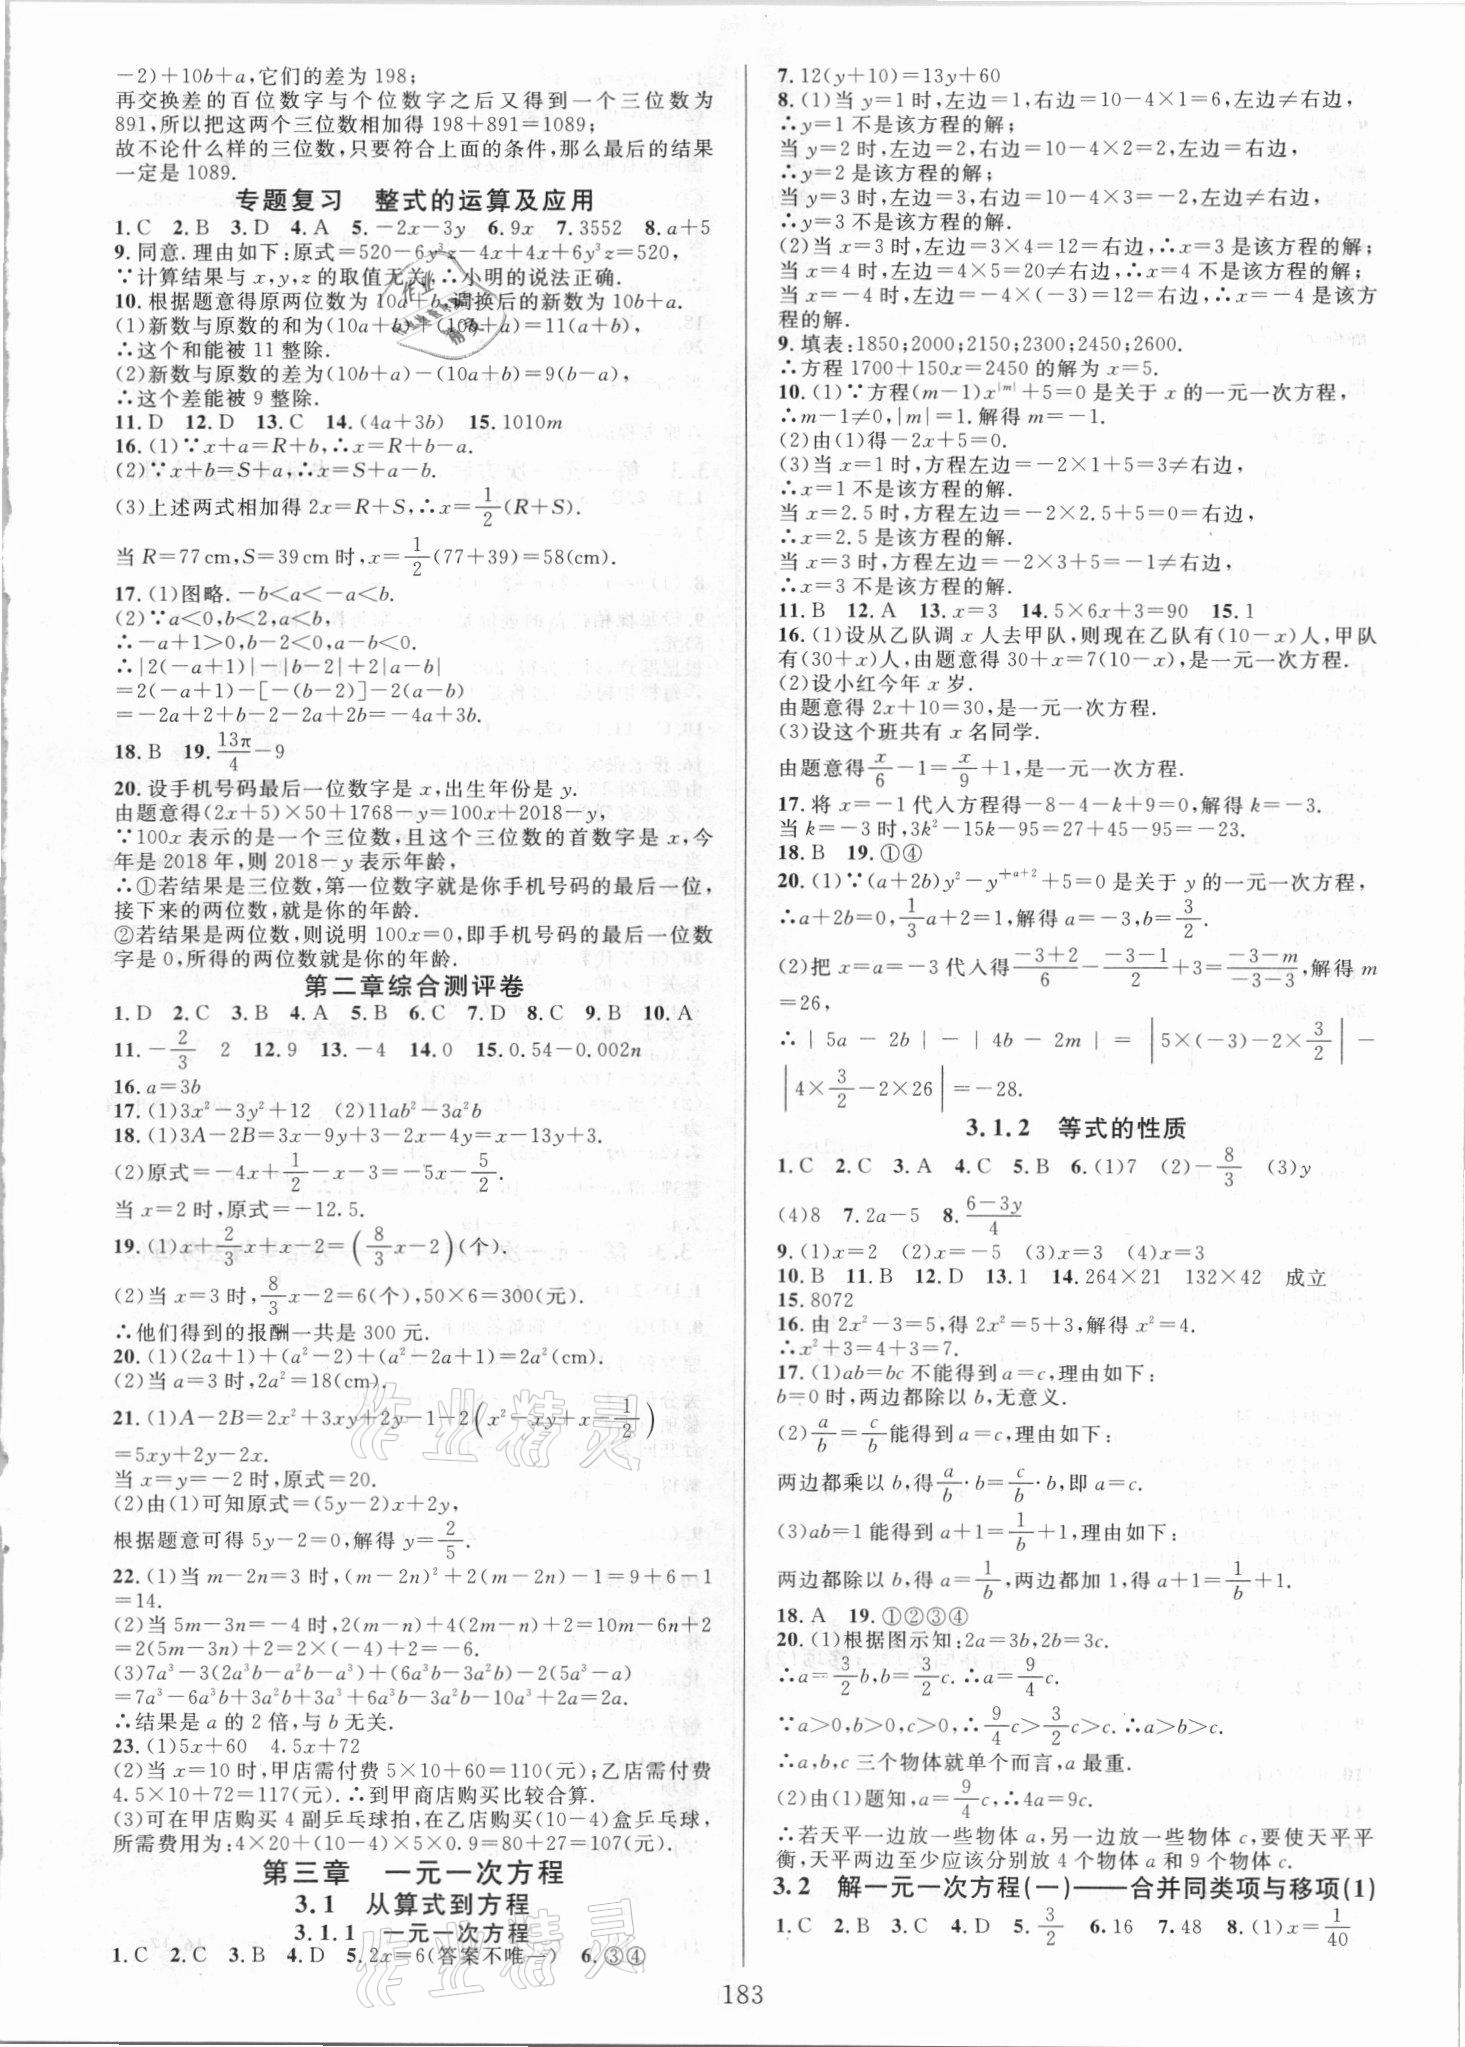 -2)+10b+a,它们的差为 198;
再交换差的百位数字与个位数字之后又得到一个三位数为
891,所以把这两个三位数相加得 198+891=1089;
故不论什么样的三位数,只要符合上面的条件,那么最后的结果
一定是 1089.
专题复习 整式的运算及应用
1.C 2.B 3.D 4.A 5.-2x-3y 6.9x 7.3552 8.a+5
9.同意.理由如下:原式=520-6y³z-4x+4x+6y³z=520,
∵计算结果与 x,y,z 的取值无关,∴小明的说法正确.
10.根据题意得原两位数为 10a+b,调换后的新数为 10b+a.
(1)新数与原数的和为(10a+b)+(10b+a)=11(a+b),
∴这个和能被 11 整除.
(2)新数与原数的差为(10b+a)-(10a+b)=9(b-a),
∴这个差能被 9 整除.
11.D 12.D 13.C 14.(4a+3b) 15.1010m
16.(1)∵x+a=R+b,∴x=R+b-a.
(2)∵x+b=S+a,∴x=S+a-b.
(3)上述两式相加得 2x=R+S,∴x=1/2(R+S).
当 R=77 cm,S=39 cm 时,x=1/2(77+39)=58(cm).
17.(1)图略.-b<a<-a<b.
(2)∵a<0,b<2,a<b,
∴-a+1>0,b-2<0,a-b<0.
∴|2(-a+1)|-|b-2|+2|a-b|
=2(-a+1)-[-(b-2)]-2(a-b)
=-2a+2+b-2-2a+2b=-4a+3b.
18.B 19.13π/4-9
20.设手机号码最后一位数字是 x,出生年份是 y.
由题意得(2x+5)×50+1768-y=100x+2018-y,
∵100x 表示的是一个三位数,且这个三位数的首数字是 x,今
年是 2018 年,则 2018-y 表示年龄,
∴①若结果是三位数,第一位数字就是你手机号码的最后一位,
接下来的两位数,就是你的年龄.
②若结果是两位数,则说明 100x=0,即手机号码的最后一位数
字是 0,所得的两位数就是你的年龄.
第二章综合测评卷
1.D 2.C 3.B 4.A 5.B 6.C 7.D 8.C 9.B 10.A
11.-2/3 2 12.9 13.-4 14.0 15.0.54-0.002n
16.a=3b
17.(1)3x²-3y²+12 (2)11ab²-3a²b
18.(1)3A-2B=3x-9y+3-2x-4y=x-13y+3.
(2)原式=-4x+1/2-x-3=-5x-5/2.
当 x=2 时,原式=-12.5.
19.(1)x+2/3x+x-2=(8/3x-2)(个).
(2)当 x=3 时,8/3x-2=6(个),50×6=300(元).
∴他们得到的报酬一共是 300 元.
20.(1)(2a+1)+(a²-2)+(a²-2a+1)=2a²(cm).
(2)当 a=3 时,2a²=18(cm).
21.(1)A-2B=2x²+3xy+2y-1-2(x²-xy+x=1/2)
=5xy+2y-2x.
当 x=y=-2 时,原式=20.
(2)由(1)可知原式=(5y-2)x+2y,
根据题意可得 5y-2=0,解得 y=2/5.
22.(1)当 m-2n=3 时,(m-2n)²+2(m-2n)-1=9+6-1
=14.
(2)当 5m-3n=-4 时,2(m-n)+4(2m-n)+2=10m-6n+2
=2(5m-3n)+2=2×(-4)+2=-6.
(3)7a³-3(2a³b-a²b-a³)+(6a³b-3a²b)-2(5a³-a)
=7a³-6a³b+3a²b+3a³+6a³b-3a²b-10a³+2a=2a.
∴结果是 a 的 2 倍,与 b 无关.
23.(1)5x+60 4.5x+72
(2)当 x=10 时,甲店需付费 5×10+60=110(元);乙店需付费
4.5×10+72=117(元).∴到甲商店购买比较合算.
(3)可在甲店购买 4 副乒乓球拍,在乙店购买(10-4)盒乒乓球,
所需费用为:4×20+(10-4)×5×0.9=80+27=107(元).
第三章 一元一次方程
3.1 从算式到方程
3.1.1 一元一次方程
1.C 2.C 3.B 4.D 5.2x=6(答案不唯一) 6.③④
7.12(y+10)=13y+60
8.(1)当 y=1 时,左边=1,右边=10-4×1=6,左边≠右边,
∴y=1 不是该方程的解;
当 y=2 时,左边=2,右边=10-4×2=2,左边=右边,
∴y=2 是该方程的解;
当 y=3 时,左边=3,右边=10-4×3=-2,左边≠右边,
∴y=3 不是该方程的解.
(2)当 x=3 时,左边=3×4=12=右边,∴x=3 是该方程的解;
当 x=4 时,左边=4×5=20≠右边,∴x=4 不是该方程的解;
当 x=-4 时,左边=-4×(-3)=12=右边,∴x=-4 是该方
程的解.
9.填表:1850;2000;2150;2300;2450;2600.
∴方程 1700+150x=2450 的解为 x=5.
10.(1)∵方程(m-1)x^|m|+5=0 是关于 x 的一元一次方程,
∴m-1≠0,|m|=1.解得 m=-1.
(2)由(1)得-2x+5=0.
(3)当 x=1 时,方程左边=-2×1+5=3≠右边,
∴x=1 不是该方程的解.
当 x=2.5 时,方程左边=-2×2.5+5=0=右边,
∴x=2.5 是该方程的解.
当 x=3 时,方程左边=-2×3+5=-1≠右边,
∴x=3 不是该方程的解.
11.B 12.A 13.x=3 14.5×6x+3=90 15.1
16.(1)设从乙队调 x 人去甲队,则现在乙队有(10-x)人,甲队
有(30+x)人,由题意得 30+x=7(10-x),是一元一次方程.
(2)设小红今年 x 岁.
由题意得 2x+10=30,是一元一次方程.
(3)设这个班共有 x 名同学.
由题意得x/6-1=x/9+1,是一元一次方程.
17.将 x=-1 代入方程得-8-4-k+9=0,解得 k=-3.
当 k=-3 时,3k²-15k-95=27+45-95=-23.
18.B 19.①④
20.(1)∵(a+2b)y²-y +5=0 是关于 y 的一元一次方程,
∴a+2b=0,1/3a+2=1,解得 a=-3,b=3/2.
(2)把 x=a=-3 代入得(-3+2)/6-(-3-1)/2+3=(-3-m)/(-3-3),解得 m
=26,
∴|5a-2b|-|4b-2m|=|5×(-3)-2×3/2|-
|4×3/2-2×26|=-28.
3.1.2 等式的性质
1.C 2.C 3.A 4.C 5.B 6.(1)7 (2)-8/3 (3)y
(4)8 7.2a-5 8.(6-3y)/4
9.(1)x=2 (2)x=-5 (3)x=3 (4)x=3
10.B 11.B 12.D 13.1 14.264×21 132×42 成立
15.8072
16.由 2x²-3=5,得 2x²=5+3,解得 x²=4.
∴x²+3=4+3=7.
17.(1)ab=bc 不能得到 a=c,理由如下:
b=0 时,两边都除以 b,无意义.
(2)a/b=c/b能得到 a=c,理由如下:
两边都乘以 b,得a/b·b=c/b·b,即 a=c.
(3)ab=1 能得到 a+1=1/b+1,理由如下:
两边都除以 b,得 a=1/b,两边都加 1,得 a+1=1/b+1.
18.A 19.①②③④
20.(1)根据图示知:2a=3b,2b=3c.
∴a=3/2b,b=3/2c.∴a=9/4c.
∵a>0,b>0,c>0,∴9/4c>3/2c.∴a>b>c.
∴a,b,c 三个物体就单个而言,a 最重.
(2)由(1)题知,a=9/4c,∴4a=9c.
∴若天平一边放一些物体 a,另一边放一些物体 c,要使天平平
衡,天平两边至少应该分别放 4 个物体 a 和 9 个物体 c.
3.2 解一元一次方程(一)——合并同类项与移项(1)
1.C 2.B 3.C 4.D 5.3/2 6.16 7.48 8.(1)x=1/40
183
作业精灵
作业精灵